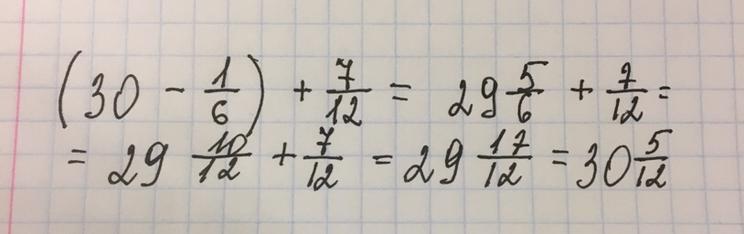 (30 - 1/6) + 7/12 = 29 5/6 + 7/12 =
= 29 10/12 + 7/12 = 29 17/12 = 30 5/12